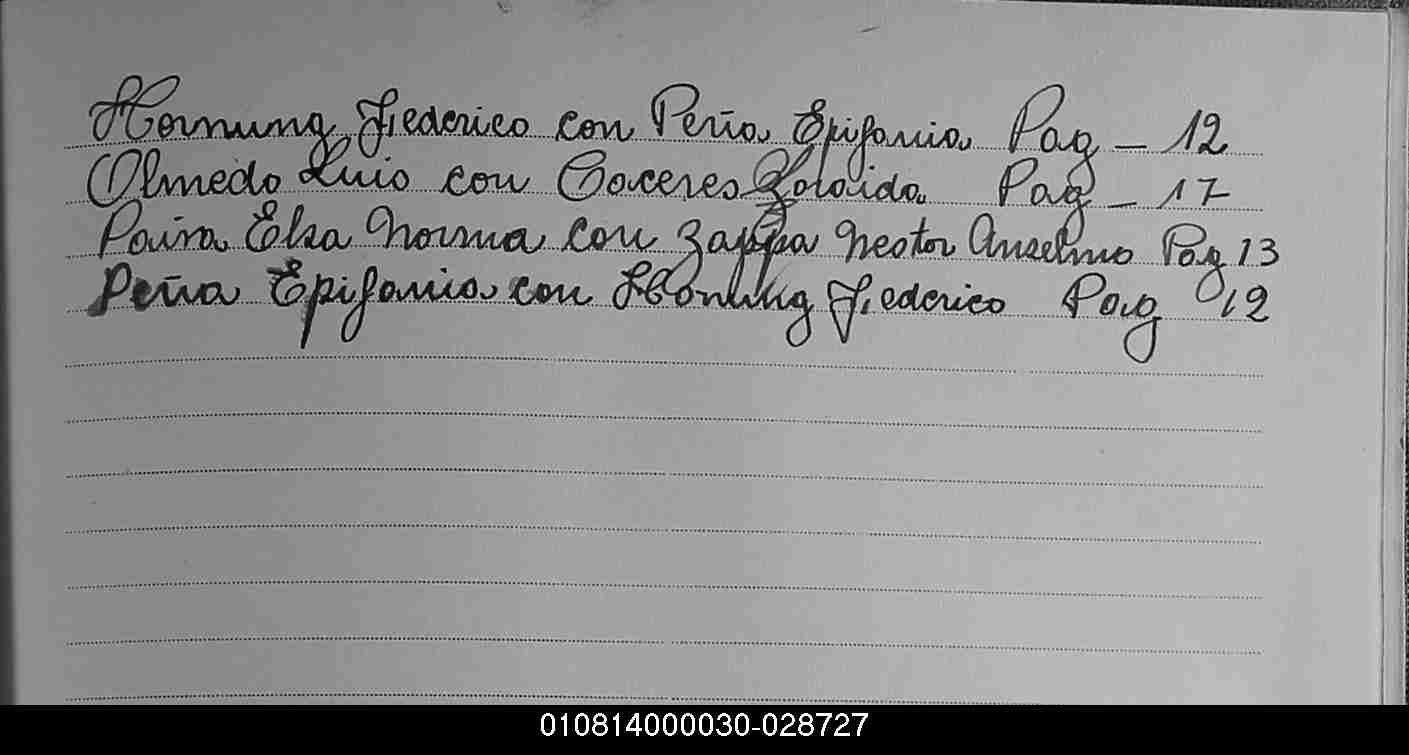 Hornung Federico con Peña Epifania Pag - 12
Olmedo Luis con Caceres Zoraida Pag - 17
Paiva Elsa Norma con Zappa Nestor Anselmo Pag 13
Peña Epifania con Honung Federico Pag 12
010814000030-028727